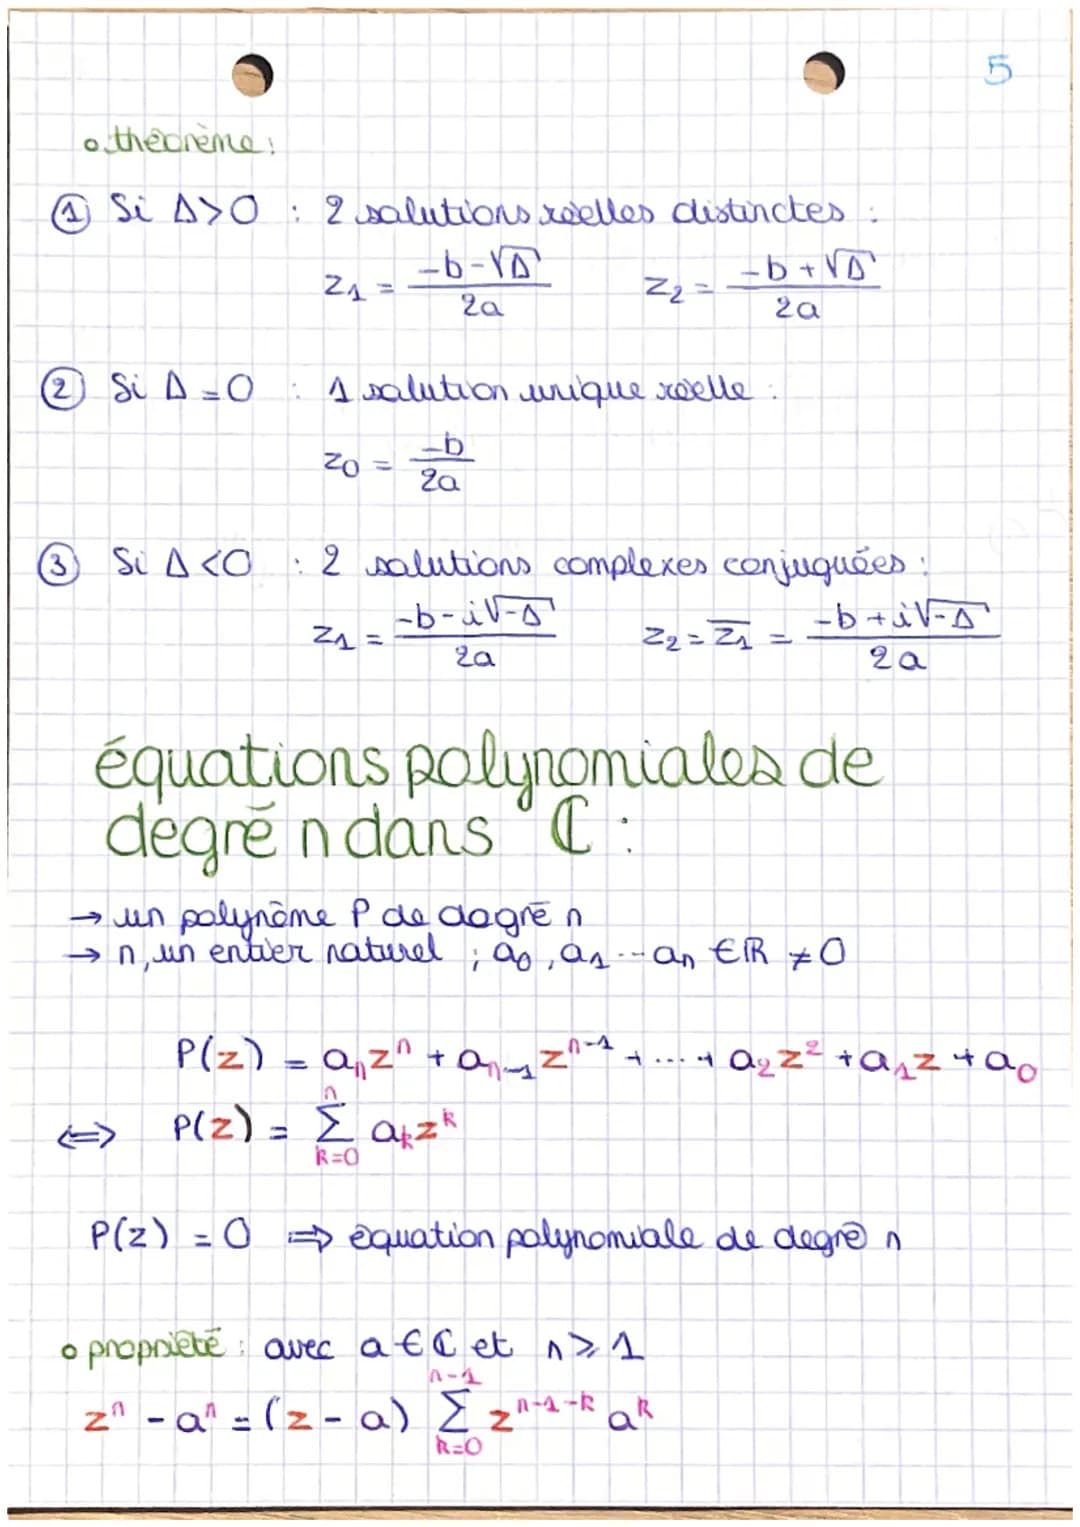 5
o théorème :
① Si Δ>0 : 2 solutions réelles distinctes :
z₁ = (-b-√Δ)/2a z₂ = (-b+√Δ)/2a
② Si Δ=0 : 1 solution unique réelle :
z₀ = -b/2a
③ Si Δ<0 : 2 solutions complexes conjuguées :
z₁ = (-b-i√-Δ)/2a z₂ = z̅₁ = (-b+i√-Δ)/2a
équations polynomiales de
degré n dans ℂ :
→ un polynôme P de dagré n
→ n, un entier naturel ; a₀, a₁ ... aₙ ∈ ℝ ≠ 0
P(z) = aₙzⁿ + aₙ₋₁zⁿ⁻¹ + ... + a₂z² + a₁z + a₀
⇔ P(z) = Σ_{k=0}^{n} aₖzᵏ
P(z) = 0 ⇒ équation polynomiale de degré n
o propriété : avec a ∈ ℂ et n ≥ 1
zⁿ - aⁿ = (z - a) Σ_{k=0}^{n-1} zⁿ⁻¹⁻ᵏ aᵏ